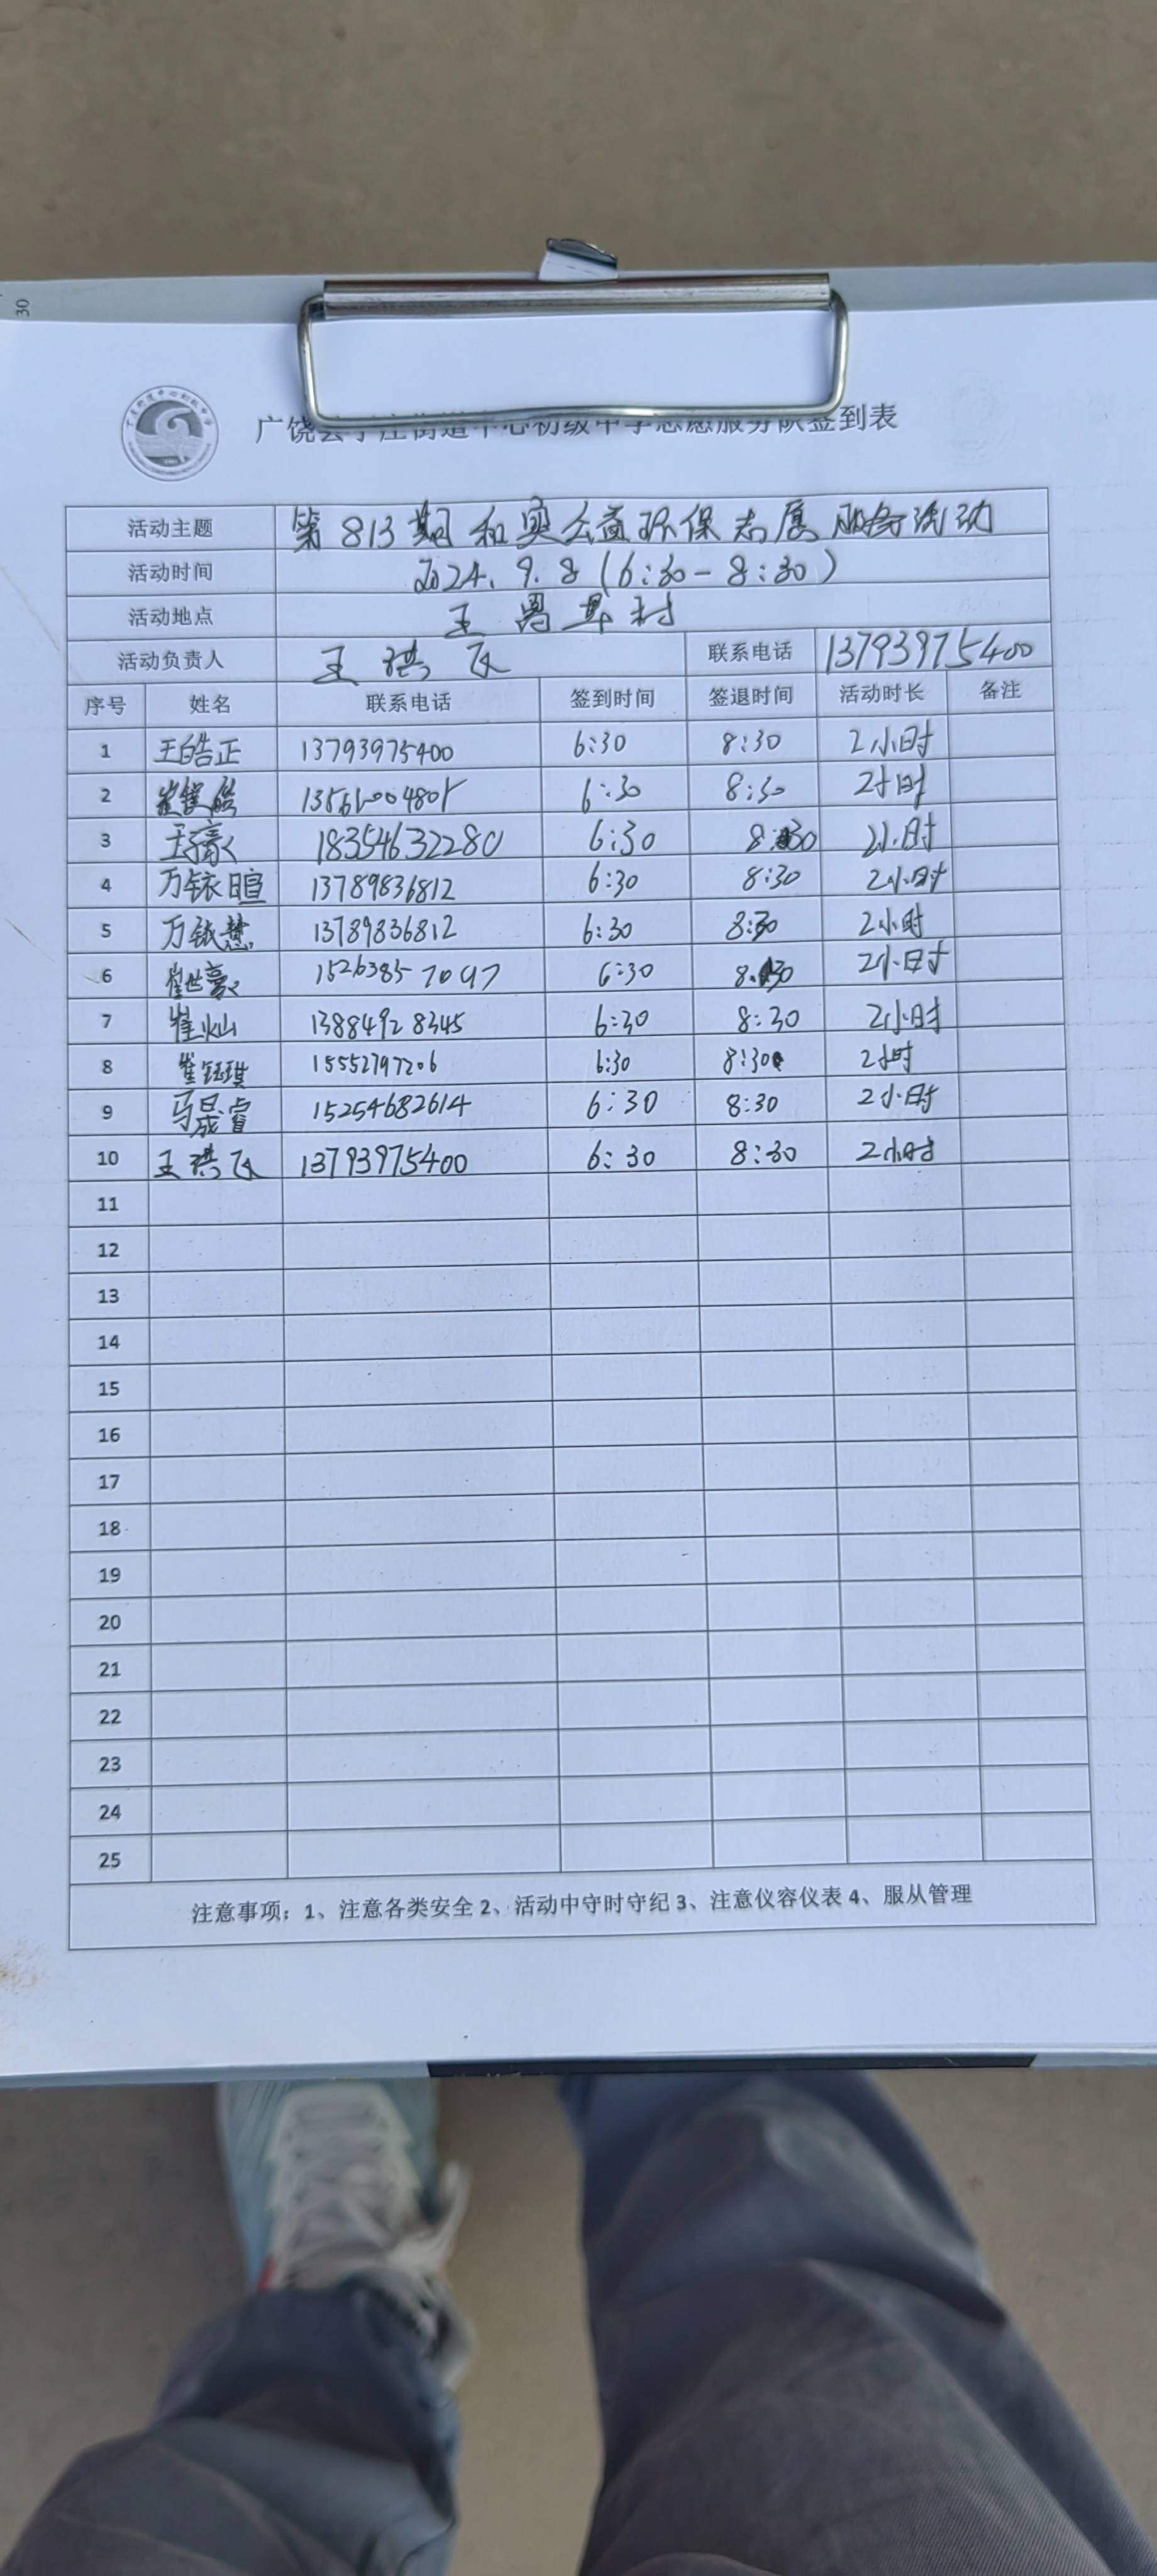 30
广饶县丁庄街道中心初级中学志愿服务队签到表
活动主题 第813期和奥公益环保志愿服务活动
活动时间 2024.9.8(6:30-8:30)
活动地点 王 村
活动负责人 王洪 联系电话 13793975400
序号 姓名 联系电话 签到时间 签退时间 活动时长 备注
1 王皓正 13793975400 6:30 8:30 2小时
2 崔 6:30 8:30 2小时
3 王 18354632280 6:30 8:30 2小时
4 万铱暄 13789836812 6:30 8:30 2小时
5 万铱慧 13789836812 6:30 8:30 2小时
6 崔世豪 15263857097 6:30 8:30 2小时
7 崔 13884928345 6:30 8:30 2小时
8 崔钰琪 15552797206 6:30 8:30 2小时
9 马晟睿 15254682614 6:30 8:30 2小时
10 王洪 13793975400 6:30 8:30 2小时
11
12
13
14
15
16
17
18
19
20
21
22
23
24
25
注意事项：1、注意各类安全 2、活动中守时守纪 3、注意仪容仪表 4、服从管理